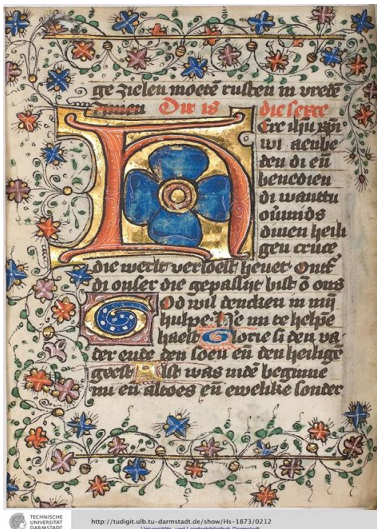 ge zielen moete rusten in vrede
Amen Dit is die serte
Here ihu xpi
wi aenbe
den di eñ
benedien
di wanttu
dinen heili
gen cruce
die werlt verloest heuet Ontf
di onser die gepassijt bist ō ons
God wil dencken in mij
hulpe He mi te helpē
haest Glorie si den va
der ende den soen eñ den heilige
geest Alst was inde beginne
nu eñ altoes eñ ewelike sonder
TECHNISCHE
UNIVERSITÄT
DARMSTADT
http://tudigit.ulb.tu-darmstadt.de/show/Hs-1873/0212
Universitäts- und Landesbibliothek Darmstadt